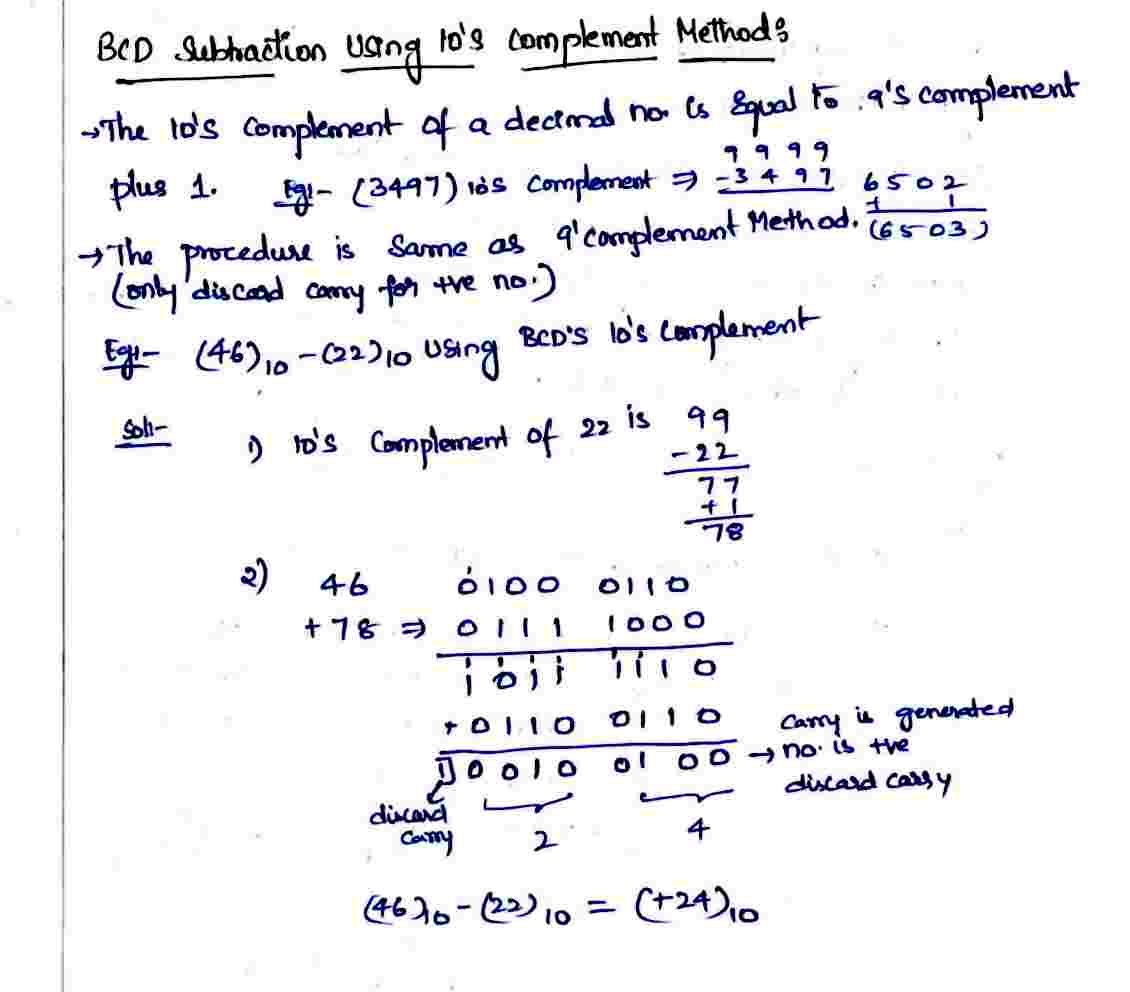 BCD Subtraction Using 10's Complement Method:
→The 10's Complement of a decimal no. is Equal to 9's complement
plus 1. Eg:- (3497) 10's Complement ⇒
9 9 9 9
-3 4 9 7
6 5 0 2
+ 1
(6503)
→The procedure is Same as 9' complement Method.
(only discard carry for +ve no.)
Eg:- (46)10 - (22)10 Using BCD'S 10's Complement
Sol:-
1) 10's Complement of 22 is 99
-22
77
+1
78
2) 46 0100 0110
+78 ⇒ 0111 1000
1011 1110
+0110 0110
1]0010 0100 → Carry is generated
no. is +ve
discard carry
discard
Carry
2 4
(46)10 - (22)10 = (+24)10